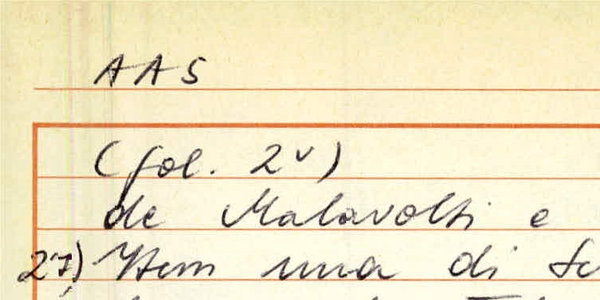 AAS
(fol. 2v)
de Malavolti e
27) Item una di